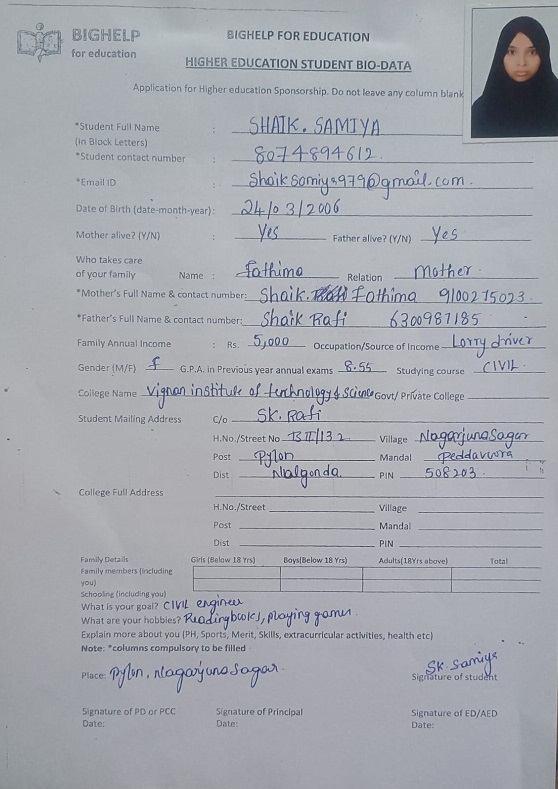 BIGHELP
for education
BIGHELP FOR EDUCATION
HIGHER EDUCATION STUDENT BIO-DATA
Application for Higher education Sponsorship. Do not leave any column blank
*Student Full Name : SHAIK. SAMIYA
(in Block Letters)
*Student contact number : 8074894612
*Email ID : Shaiksamiya979@gmail.com.
Date of Birth (date-month-year): 24/03/2006
Mother alive? (Y/N) : Yes Father alive? (Y/N) Yes
Who takes care
of your family Name : Fathima Relation mother
*Mother's Full Name & contact number: Shaik. Fathima 9100275023
*Father's Full Name & contact number: Shaik Rafi 6300987185
Family Annual Income : Rs. 5,000 Occupation/Source of Income Lorry driver
Gender (M/F) f G.P.A. in Previous year annual exams 8.55 Studying course CIVIL
College Name Vignan institute of technology & Science Govt/ Private College
Student Mailing Address C/o SK. Rafi
H.No./Street No BII/132 Village Nagarjuna Sagar
Post Pylon Mandal Peddavoora
Dist Nalgonda PIN 508203
College Full Address
H.No./Street Village
Post Mandal
Dist PIN
Family Details Girls (Below 18 Yrs) Boys(Below 18 Yrs) Adults(18Yrs above) Total
Family members (including
you)
Schooling (including you)
What is your goal? CIVIL engineer
What are your hobbies? Reading books, playing games
Explain more about you (PH, Sports, Merit, Skills, extracurricular activities, health etc)
Note: *columns compulsory to be filled
Place: Pylon, Nagarjuna Sagar. SK. Samiya
Signature of student
Signature of PD or PCC Signature of Principal Signature of ED/AED
Date: Date: Date: